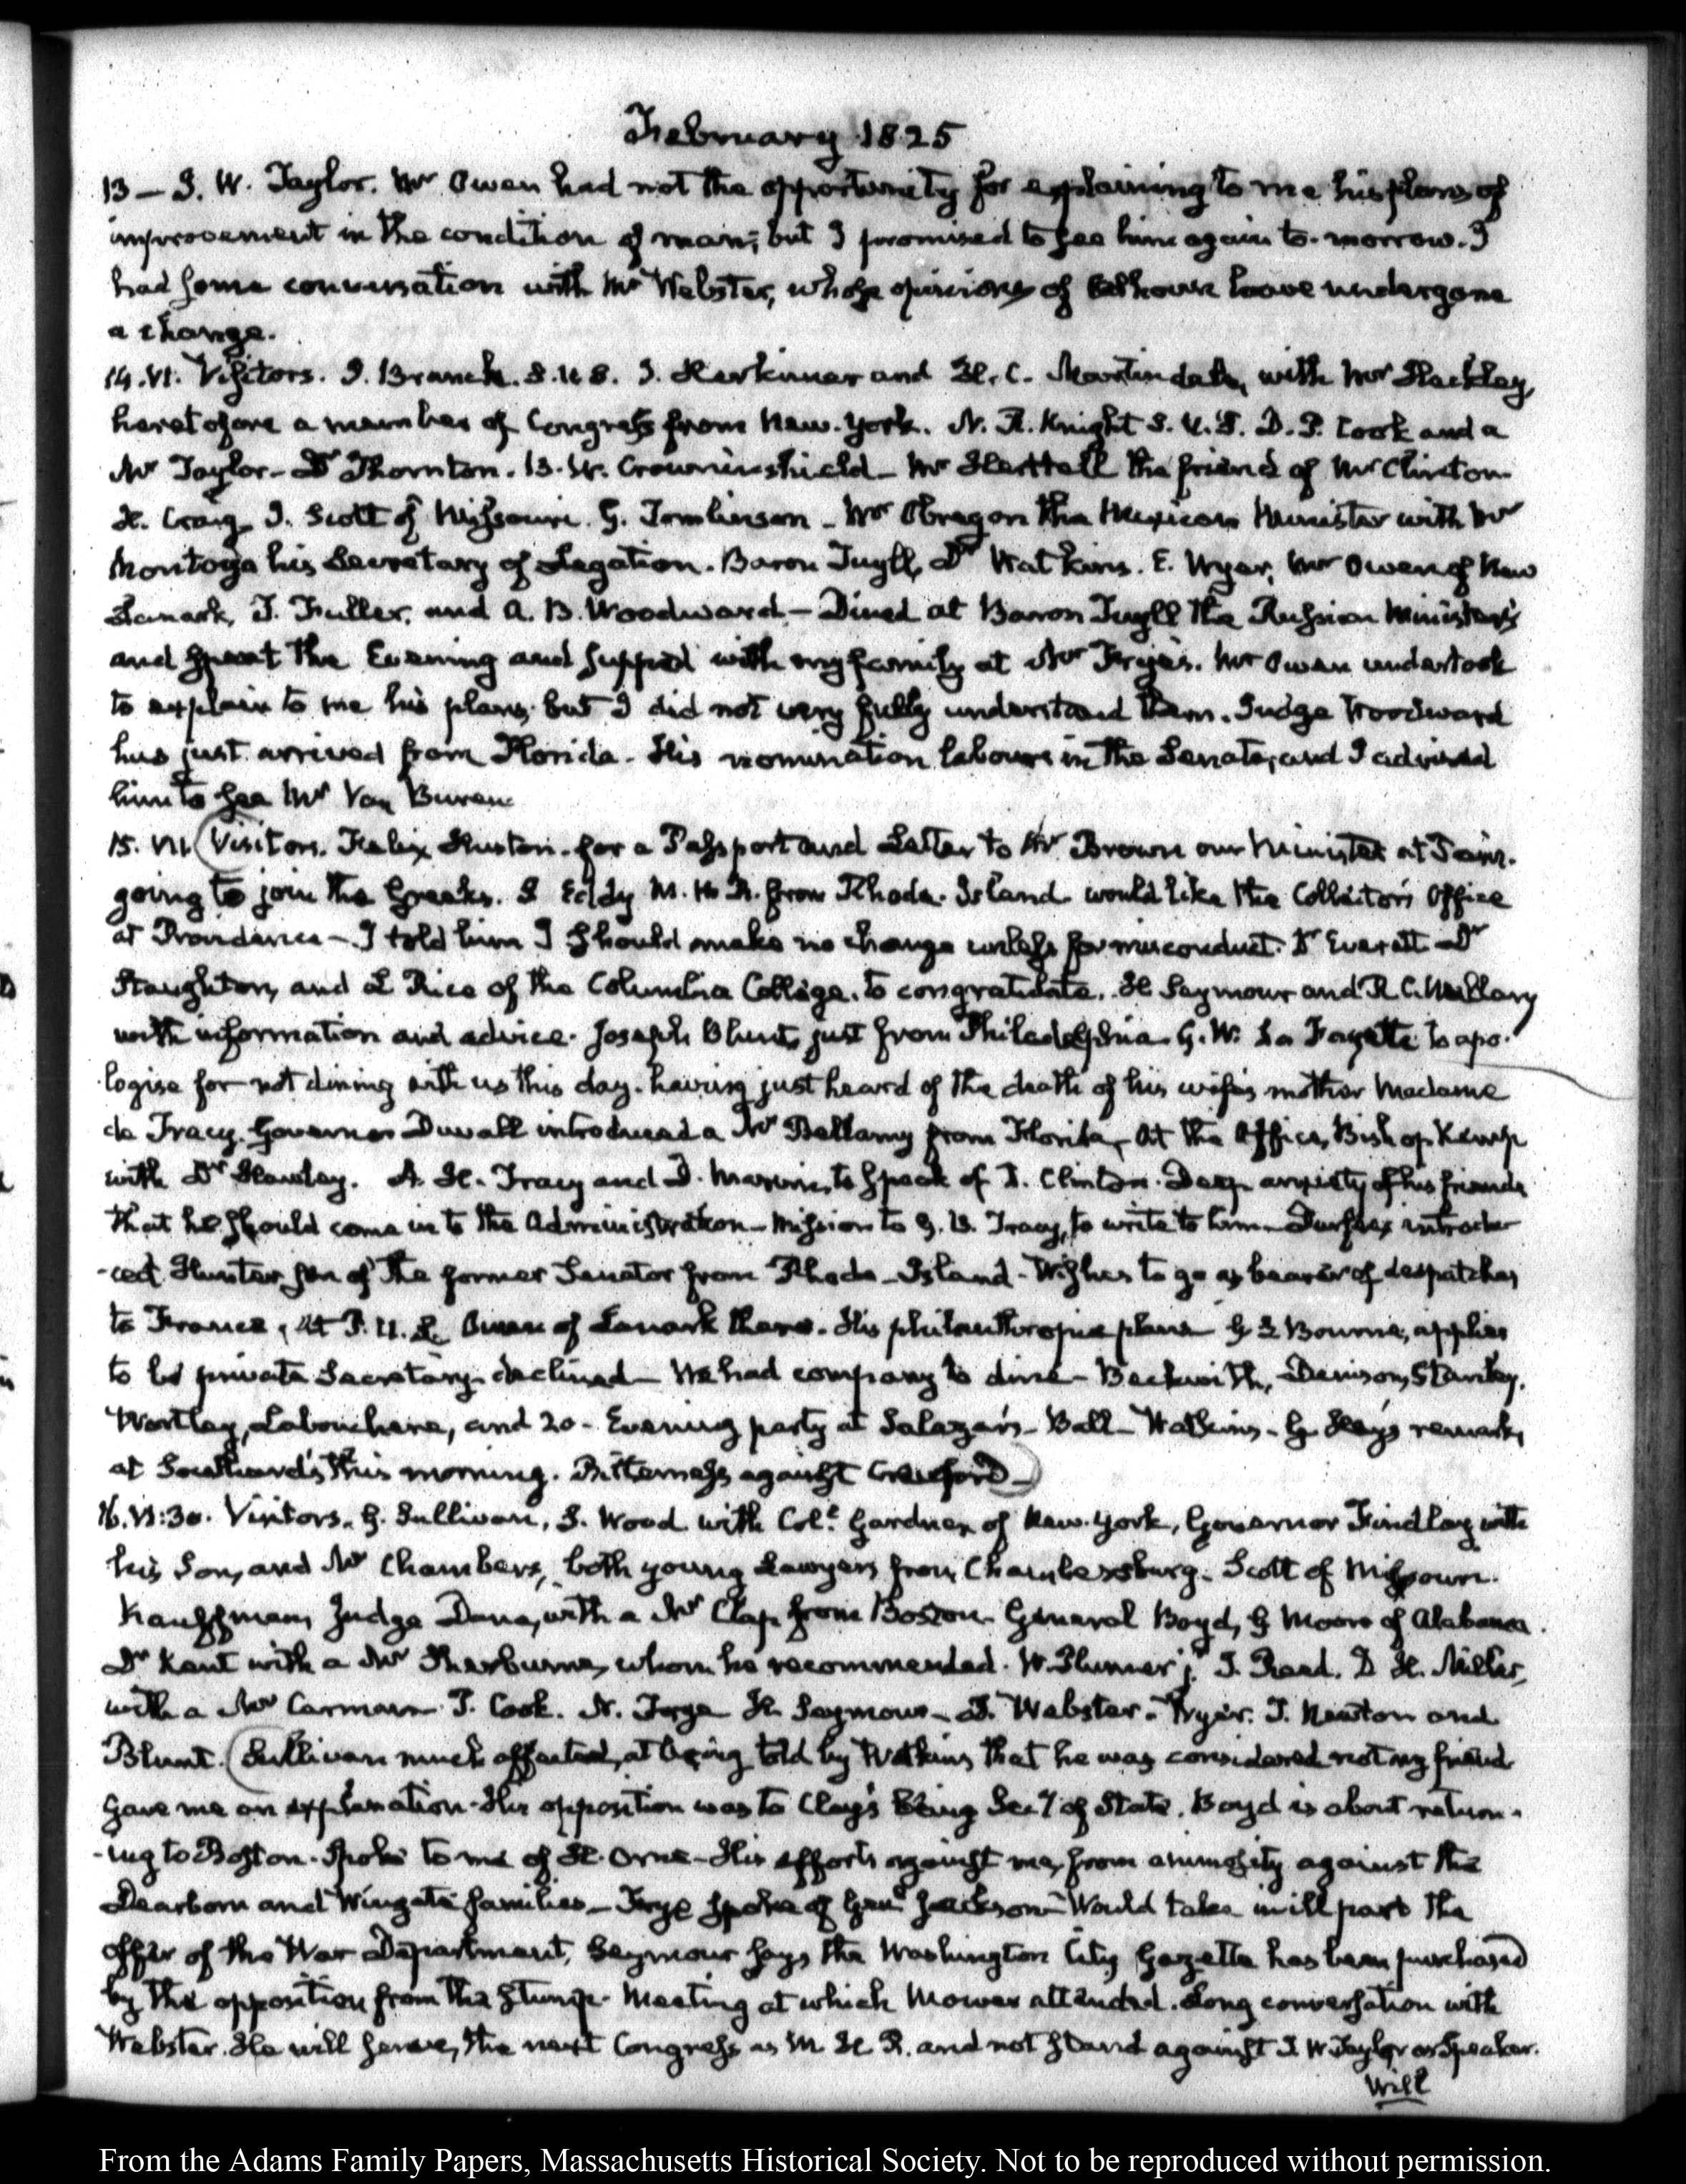 February 1825
13 — J. W. Taylor. Mr Owen had not the opportunity for explaining to me his plans of
improvement in the condition of man; but I promised to see him again to-morrow. I
had some conversation with Mr Webster, whose opinions of Calhoun have undergone
a change.
14. VI. Visitors. J. Branch. S.U.S. J. Herkimer and H. C. Martindale, with Mr Hackley,
heretofore a member of Congress from New-York. N. R. Knight S.U.S. D. P. Cook and a
Mr Taylor — Dr Thornton. B. W. Crowninshield — Mr Hertell the friend of Mr Clinton
H. Craig. J. Scott of Missouri. G. Tomlinson — Mr Obregon the Mexican Minister with Mr
Montoya his Secretary of Legation. Baron Tuyll, Dr Watkins. E. Wyer, Mr Owen of New
Lanark, T. Fuller, and A. B. Woodward — Dined at Baron Tuyll the Russian Minister's
and spent the Evening and supped with my family at Mr Frye's. Mr Owen undertook
to explain to me his plans, but I did not very fully understand them. Judge Woodward
has just arrived from Florida. His nomination labours in the Senate, and I advised
him to see Mr Van Buren
15. VII. Visitors. Felix Huston. for a Passport and Letter to Mr Brown our Minister at Paris.
going to join the Greeks. S Eddy M. H. R. from Rhode-Island would like the Collector's Office
at Providence — I told him I should make no change unless for misconduct. Everett — Dr
Staughton, and L Rice of the Columbia College, to congratulate. H Seymour and R C. Mallary
with information and advice. Joseph Blunt, just from Philadelphia. G. W. La Fayette to apo-
logise for not dining with us this day. having just heard of the death of his wife's mother Madame
de Tracy. Governor Duvall introduced a Mr Bellamy from Florida. At the Office, Bishop Kemp
with Dr Hawley. A. H. Tracy and D. Marvin, to speak of D. Clinton. Deep anxiety of his friends
that he should come in to the Administration — Mission to G. B. Tracy, to write to him — Durfee introdu-
-ced Hunter son of the former Senator from Rhode-Island — Wishes to go as bearer of despatches
to France, At P.U.S. Owen of Lanark there. His philanthropic plans G S Bourne, applies
to be private Secretary — declined — We had company to dine — Beckwith, Denison, Stanley,
Wortley, Labouchere, and 20 — Evening party at Salazar's — Ball — Watkins — G. Hay's remarks
at Southard's this morning. Bitterness against Crawford —
16. VI:30. Visitors. G. Sullivan, S. Wood with Colt Gardner of New-York, Governor Findlay with
his Son, and Mr Chambers, both young Lawyers from Chambersburg. Scott of Missouri.
Kauffman, Judge Dana, with a Mr Clap from Boston. General Boyd, G Moore of Alabama.
Dr Kent with a Mr Sherburne, whom he recommended. W. Plumer jr. J. Reed. D H. Miller,
with a Mr Carman. T. Cook. N. Frye H. Seymour — D. Webster — Wyer. T. Newton and
Blunt. Sullivan much affected, at being told by Watkins that he was considered not my friend
gave me an explanation. His opposition was to Clay's being Secy of State. Boyd is about return-
-ing to Boston. Spoke to me of H. Orne — His efforts against me, from animosity against the
Dearborn and Wingate families — Frye spoke of Genl Jackson — Would take in ill part the
offer of the War Department. Seymour says the Washington City Gazette has been purchased
by the opposition from the stump. Meeting at which Mower attended. Long conversation with
Webster. He will serve, the next Congress as M H R. and not stand against J. W. Taylor as Speaker.
Will
From the Adams Family Papers, Massachusetts Historical Society. Not to be reproduced without permission.